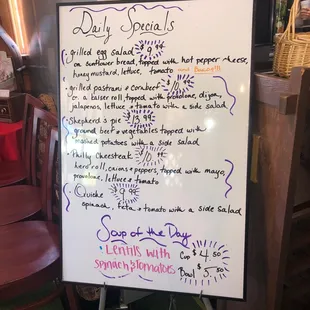 Daily Specials
• grilled egg salad $9.99
on sunflower bread, topped with hot pepper cheese,
honey mustard, lettuce, tomato
• grilled pastrami & corn beef
on a kaiser roll, topped with provolone, dijon,
jalapenos, lettuce & tomato with a side salad
• Shepherd's pie $13.99
ground beef & vegetables topped with
mashed potatoes with a side salad
• Philly Cheesteak
hero roll, onions & peppers, topped with mayo,
provolone, lettuce & tomato
• Quiche $9.95
spinach, feta & tomato with a side salad
Soup of the Day
• Lentils with
Spinach & tomatoes
Cup $4.50
Bowl $5.50